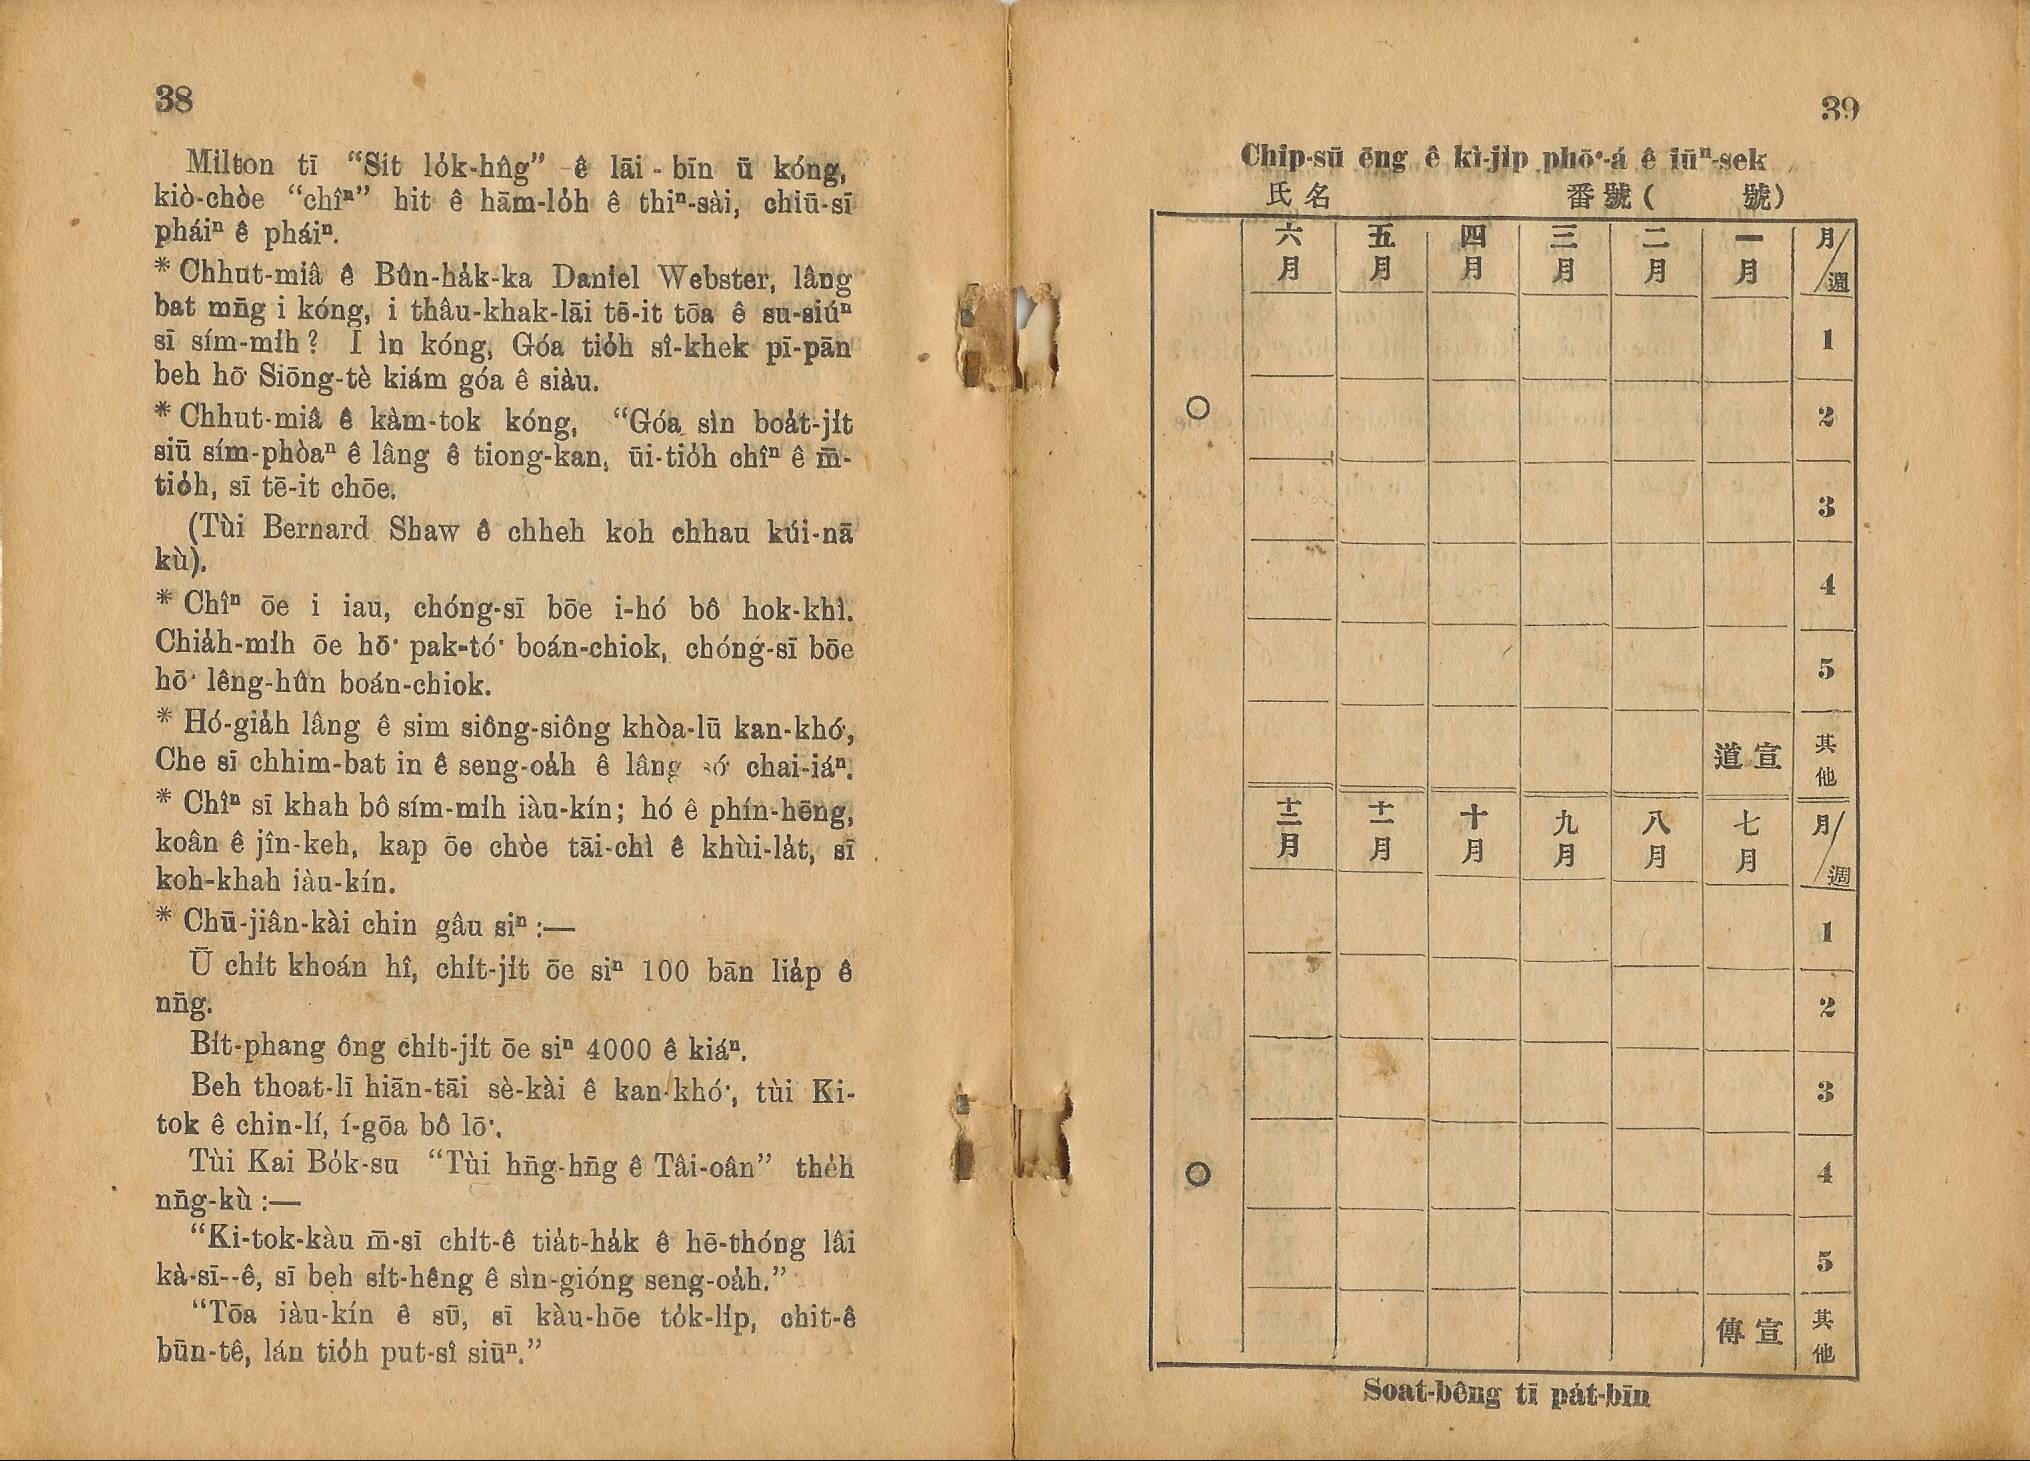 38
Milton tī “Sit lo̍k-hn̂g” ê lāi-bīn ū kóng,
kiò-chòe “chîⁿ” hit ê hām-lo̍h ê thiⁿ-sài, chiū-sī
pháiⁿ ê pháiⁿ.
* Chhut-miâ ê Bûn-ha̍k-ka Daniel Webster, lâng
bat mn̄g i kóng, i thâu-khak-lāi tē-it tōa ê su-siúⁿ
sī sím-mi̍h? I ìn kóng, Góa tio̍h sî-khek pī-pān
beh hō͘ Siōng-tè kiám góa ê siàu.
* Chhut-miâ ê kàm-tok kóng, “Góa sìn boa̍t-ji̍t
siū sím-phòaⁿ ê lâng ê tiong-kan, ūi-tio̍h chîⁿ ê m̄-
tio̍h, sī tē-it chōe.
(Tùi Bernard Shaw ê chheh koh chhau kúi-nā
kù).
* Chîⁿ ōe i iau, chóng-sī bōe i-hó bô hok-khì.
Chia̍h-mi̍h ōe hō͘ pak-tó͘ boán-chiok, chóng-sī bōe
hō͘ lêng-hûn boán-chiok.
* Hó-gia̍h lâng ê sim siông-siông khòa-lū kan-khó͘,
Che sī chhim-bat in ê seng-oa̍h ê lâng só͘ chai-iáⁿ.
* Chîⁿ sī khah bô sím-mi̍h iàu-kín; hó ê phín-hēng,
koân ê jîn-keh, kap ōe chòe tāi-chì ê khùi-la̍t, sī
koh-khah iàu-kín.
* Chū-jiân-kài chin gâu siⁿ:—
Ū chi̍t khoán hî, chi̍t-ji̍t ōe siⁿ 100 bān lia̍p ê
nn̄g.
Bi̍t-phang ông chi̍t-ji̍t ōe siⁿ 4000 ê kiáⁿ.
Beh thoat-lī hiān-tāi sè-kài ê kan-khó͘, tùi Ki-
tok ê chin-lí, í-gōa bô lō͘.
Tùi Kai Bo̍k-su “Tùi hn̄g-hn̄g ê Tâi-oân” the̍h
nn̄g-kù:—
“Ki-tok-kàu m̄-sī chi̍t-ê tia̍t-ha̍k ê hē-thóng lâi
kà-sī--ê, sī beh si̍t-hêng ê sìn-gióng seng-oa̍h.”
“Tōa iàu-kín ê sū, sī kàu-hōe to̍k-li̍p, chit-ê
būn-tê, lán tio̍h put-sî siūⁿ.”
39
Chip-sū ēng ê kì-ji̍p phō͘-á ê iūⁿ-sek
氏名 番號( 號)
六月 五月 四月 三月 二月 一月 月/週
1
2
3
4
5
道宣 其他
十二月 十一月 十月 九月 八月 七月 月/週
1
2
3
4
5
傳宣 其他
Soat-bêng tī pa̍t-bīn